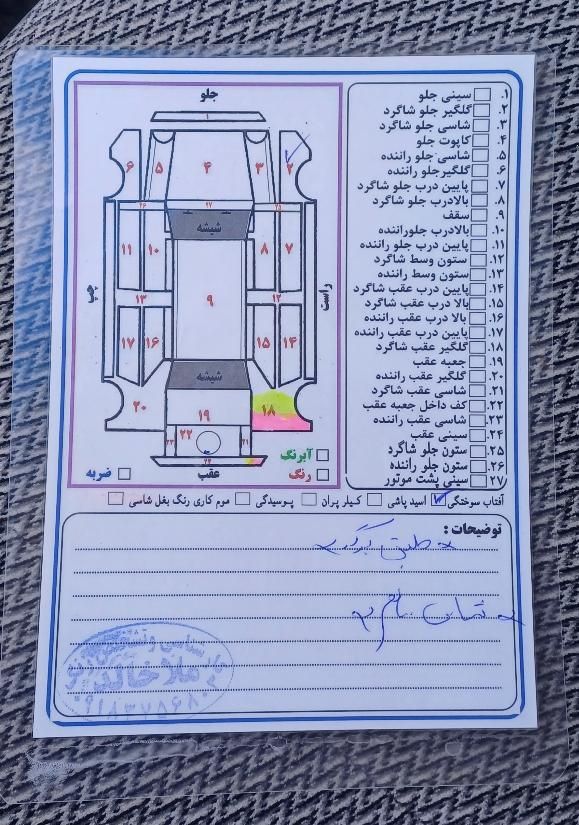 جلو
۱
۶
۵
۴
۳
۲
۲۶
۲۷
۲۵
شیشه
۱۱
۱۰
۸
۷
چپ
۹
راست
۱۳
۱۲
۱۷
۱۶
۱۵
۱۴
شیشه
۲۰
۱۹
۱۸
۲۳
۲۲
۲۱
۲۴
عقب
آبرنگ
رنگ
ضربه
۱. سینی جلو
۲. گلگیر جلو شاگرد
۳. شاسی جلو شاگرد
۴. کاپوت جلو
۵. شاسی جلو راننده
۶. گلگیرجلو راننده
۷. پایین درب جلو شاگرد
۸. بالادرب جلو شاگرد
۹. سقف
۱۰. بالادرب جلوراننده
۱۱. پایین درب جلو راننده
۱۲. ستون وسط شاگرد
۱۳. ستون وسط راننده
۱۴. پایین درب عقب شاگرد
۱۵. بالا درب عقب شاگرد
۱۶. بالا درب عقب راننده
۱۷. پایین درب عقب راننده
۱۸. گلگیر عقب شاگرد
۱۹. جعبه عقب
۲۰. گلگیر عقب راننده
۲۱. شاسی عقب شاگرد
۲۲. کف داخل جعبه عقب
۲۳. شاسی عقب راننده
۲۴. سینی عقب
۲۵. ستون جلو شاگرد
۲۶. ستون جلو راننده
۲۷. سینی پشت موتور
آفتاب سوختگی اسید پاشی کیلر پران پوسیدگی موم کاری رنگ بغل شاسی
توضیحات :
کارشناسی و تشخیص
ملا خالد